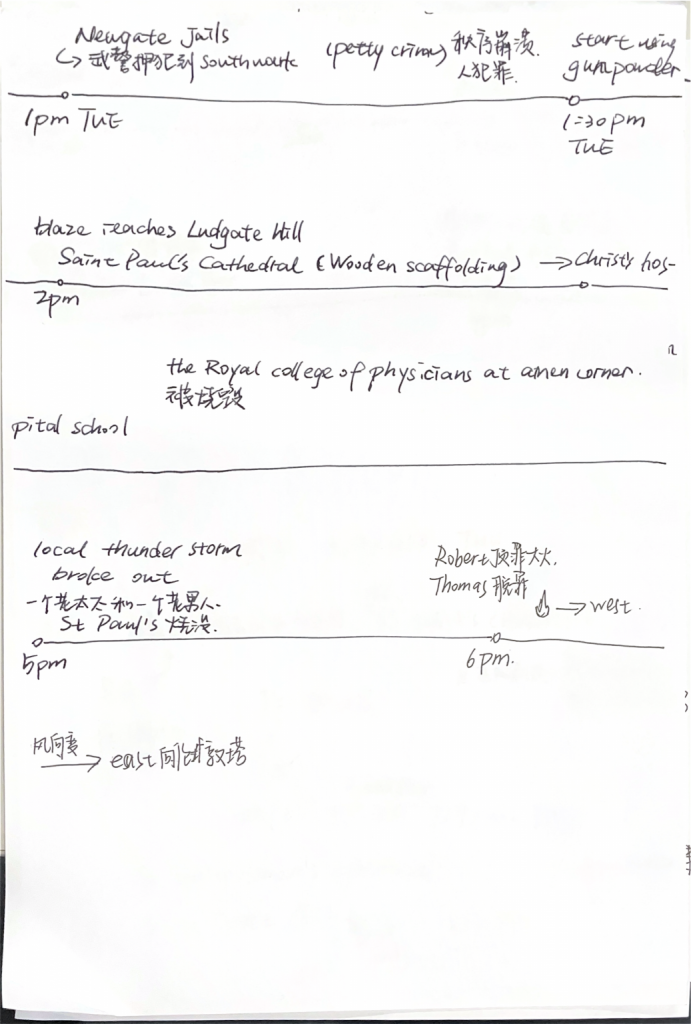 Newgate Jails
↳ 武警押犯到 Southwark
(petty crime) 秩序崩溃.
人犯罪.
start using
gunpowder.
1pm TUE
1:30pm
TUE
blaze reaches Ludgate Hill
Saint Paul's Cathedral (Wooden scaffolding) → Christ's hos-
2pm
the Royal college of physicians at amen corner.
被烧毁
pital school
local thunder storm
broke out
一个老太太和一个老男人.
St Paul's 烧没.
Robert 顶罪大火.
Thomas 脱罪
→ west.
5pm
6pm.
风向变
→ east 向伦敦塔